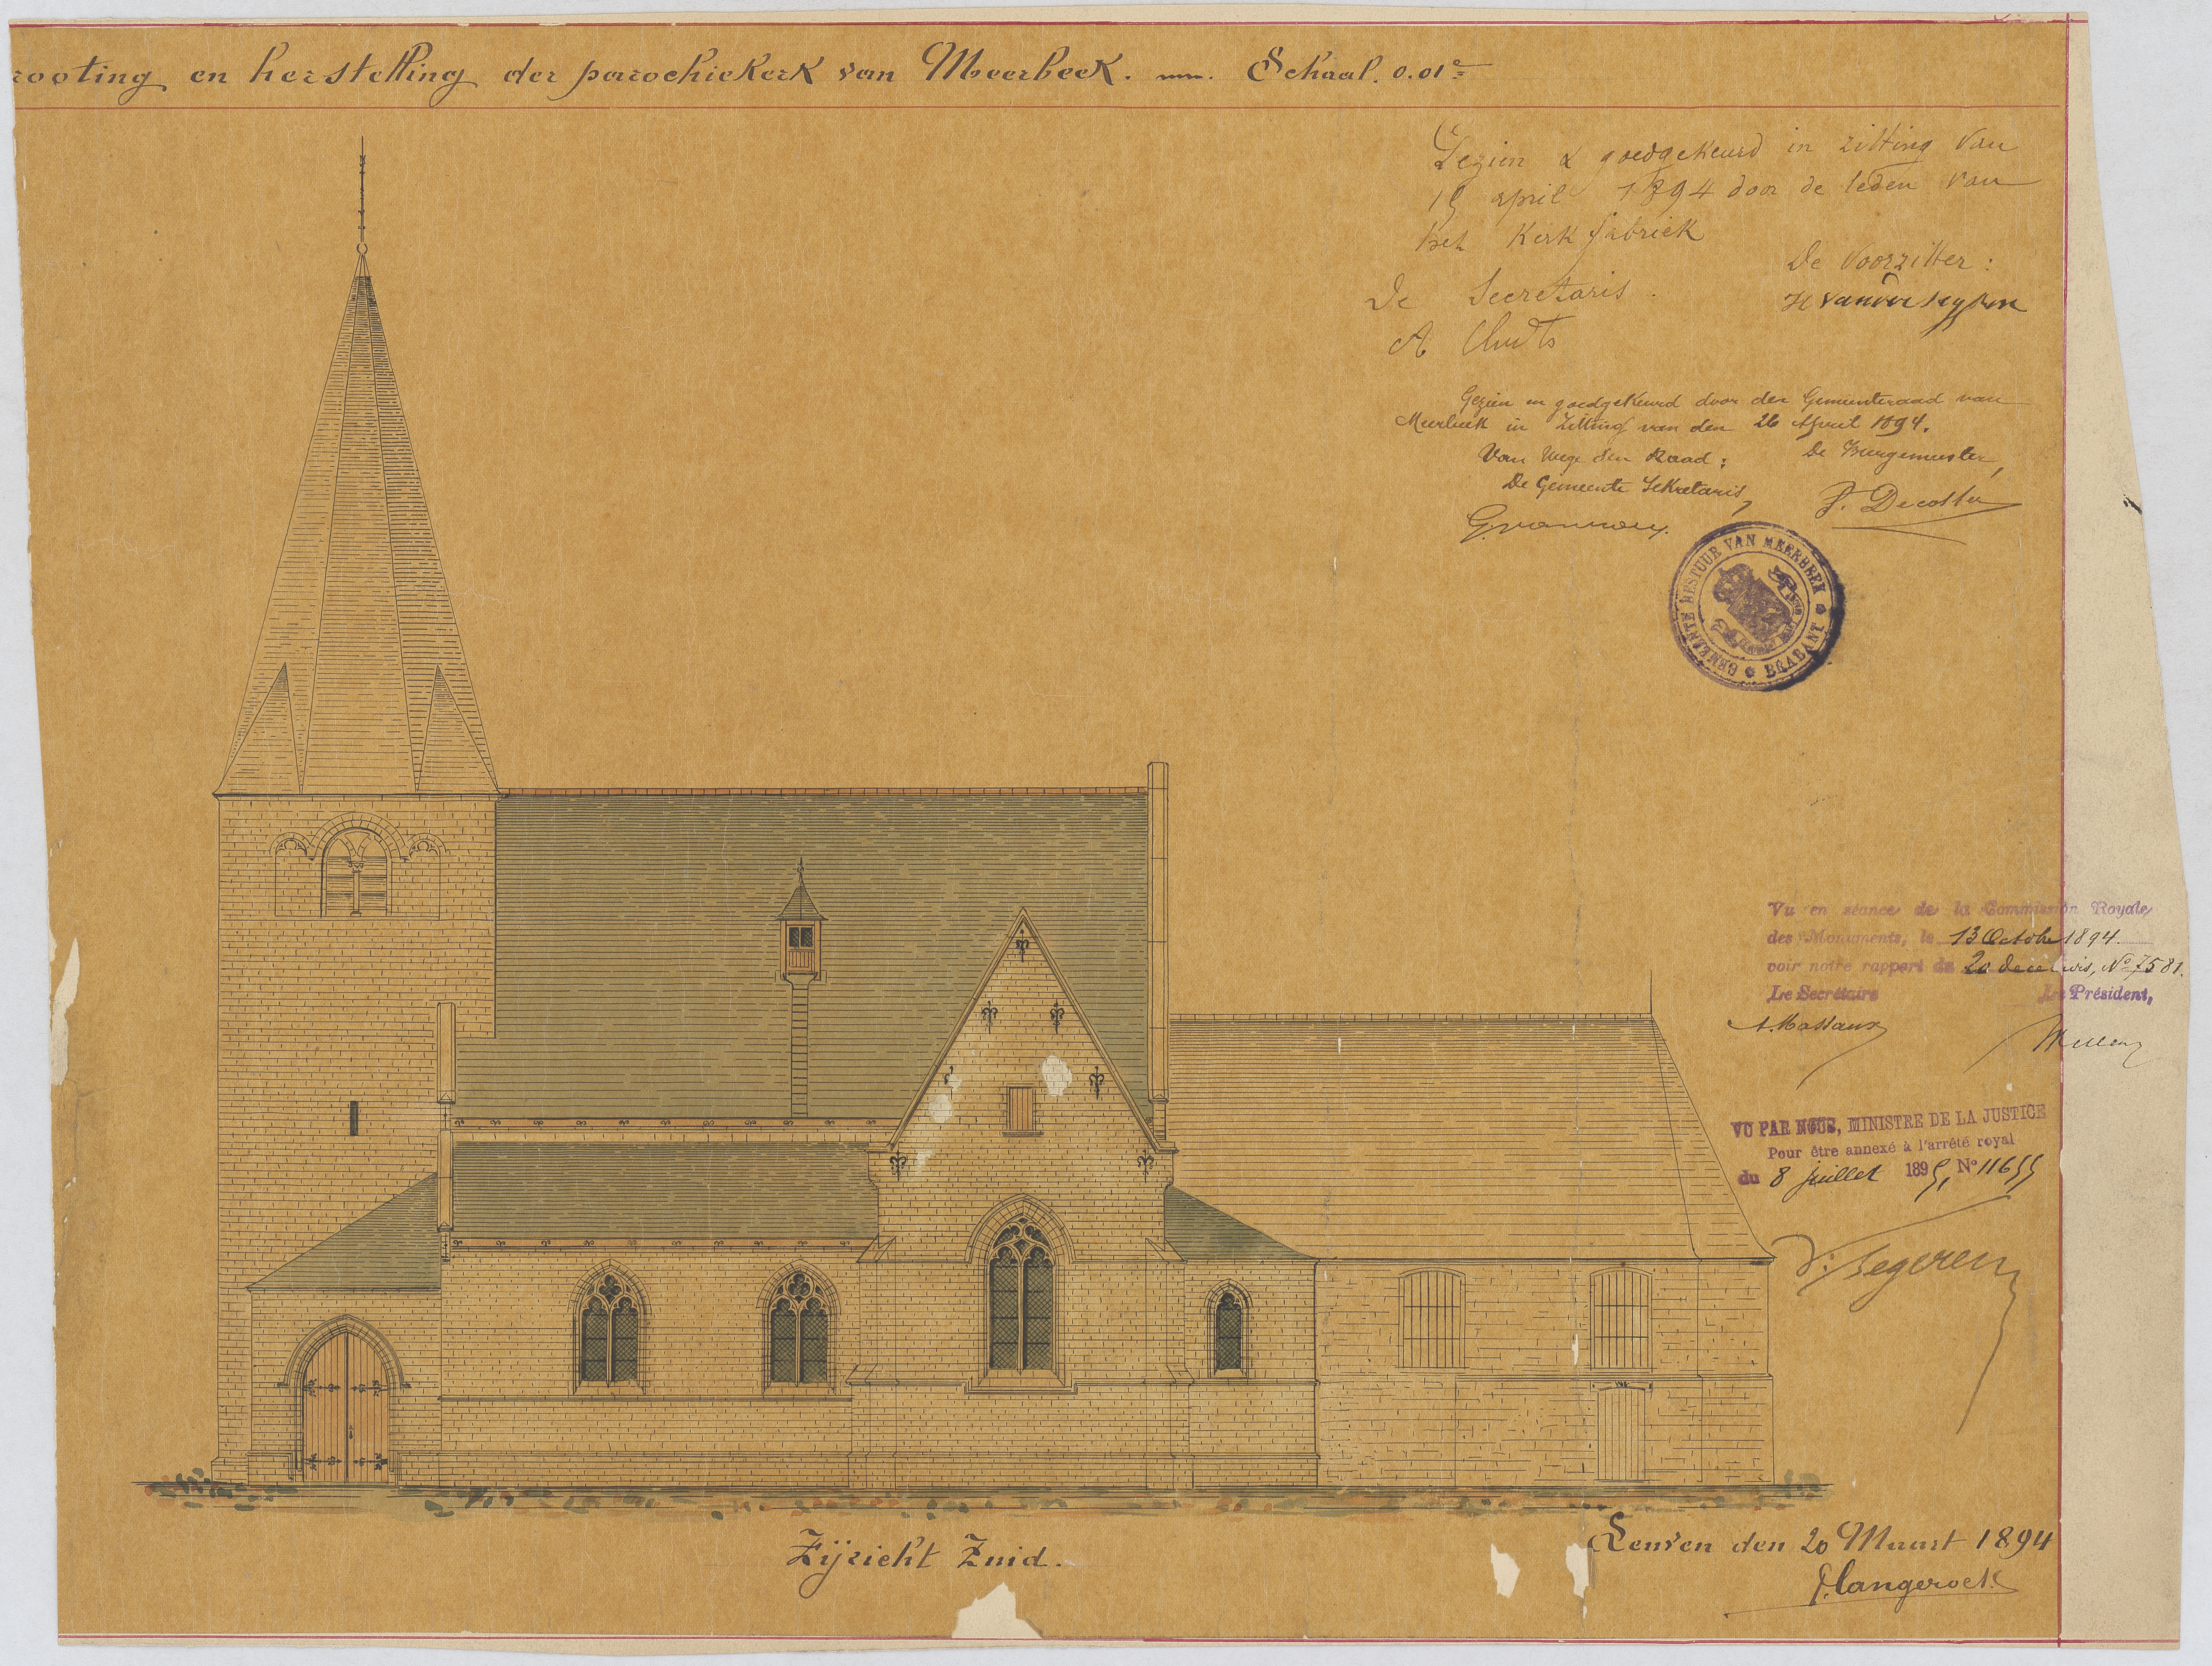 rooting en herstelling der parochiekerk van Meerbeek. Schaal. 0.01e
Gezien & goedgekeurd in zitting van
15 april 1894 door de leden van
het Kerkfabriek
De Voorzitter:
De Secretaris.
A
Gezien en goedgekeurd door den Gemeenteraad van
Meerbeek in Zitting van den 26 April 1894.
Van wege den Raad: De Burgemeester,
De Gemeente Sekretaris, J. Decoster
GEMEENTE BESTUUR VAN MEERBEEK
BRABANT
Vu en séance de la Commission Royale
des Monuments, le 13 Octobre 1894
voir notre rapport du 20 decembre, No 7581.
Le Secrétaire Le Président,
A. Massaux
VU PAR NOUS, MINISTRE DE LA JUSTICE
Pour être annexé à l'arrêté royal
du 8 juillet 1895, No 11655
V. Begerem
Zijzicht Zuid.
Leuven den 20 Maart 1894
P. Langerock